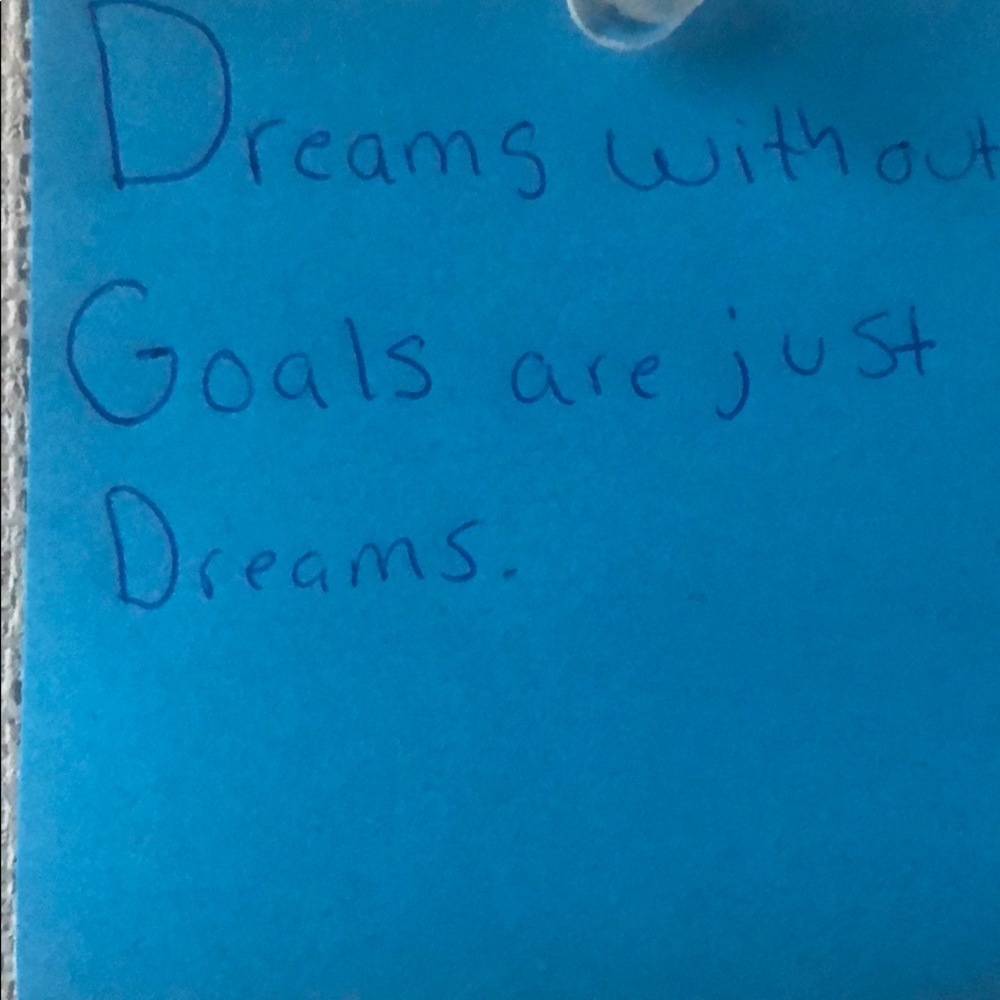 Dreams without
Goals are just
Dreams.